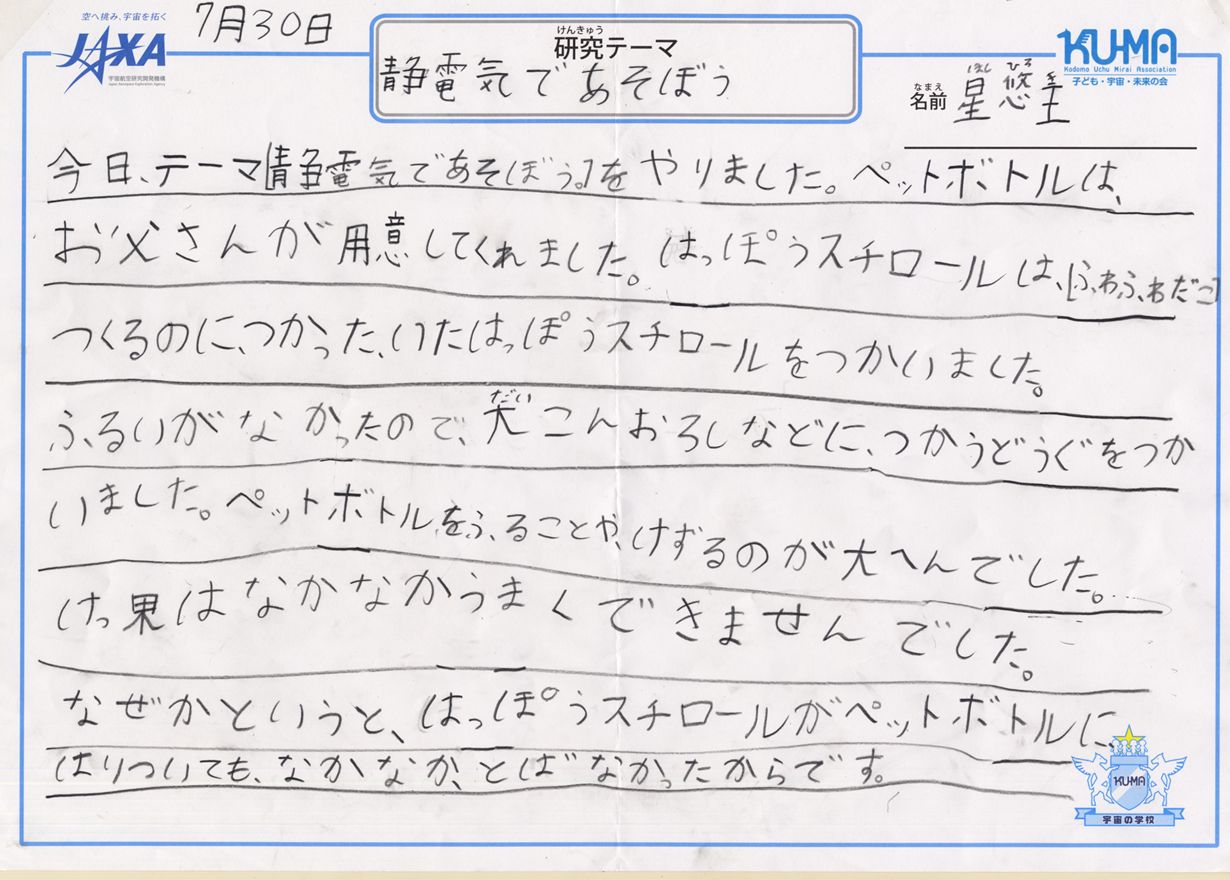 空へ挑み、宇宙を拓く
JAXA
宇宙航空研究開発機構
Japan Aerospace Exploration Agency
7月30日
けんきゅう
研究テーマ
静電気であそぼう
KU-MA
Kodomo Uchu Mirai Association
子ども・宇宙・未来の会
なまえ
名前
ほし ひろ
星悠
今日、テーマ「静電気であそぼう。」をやりました。ペットボトルは、
お父さんが用意してくれました。はっぽうスチロールは、「ふわふわだこ」
つくるのに、つかった、いたはっぽうスチロールをつかいました。
だい
ふるいがなかったので、大こんおろしなどに、つかうどうぐをつか
いました。ペットボトルをふることや、けずるのが大へんでした。
けっ果はなかなかうまくできませんでした。
なぜかというと、はっぽうスチロールがペットボトルに、
はりついても、なかなか、とばなかったからです。
KU-MA
宇宙の学校